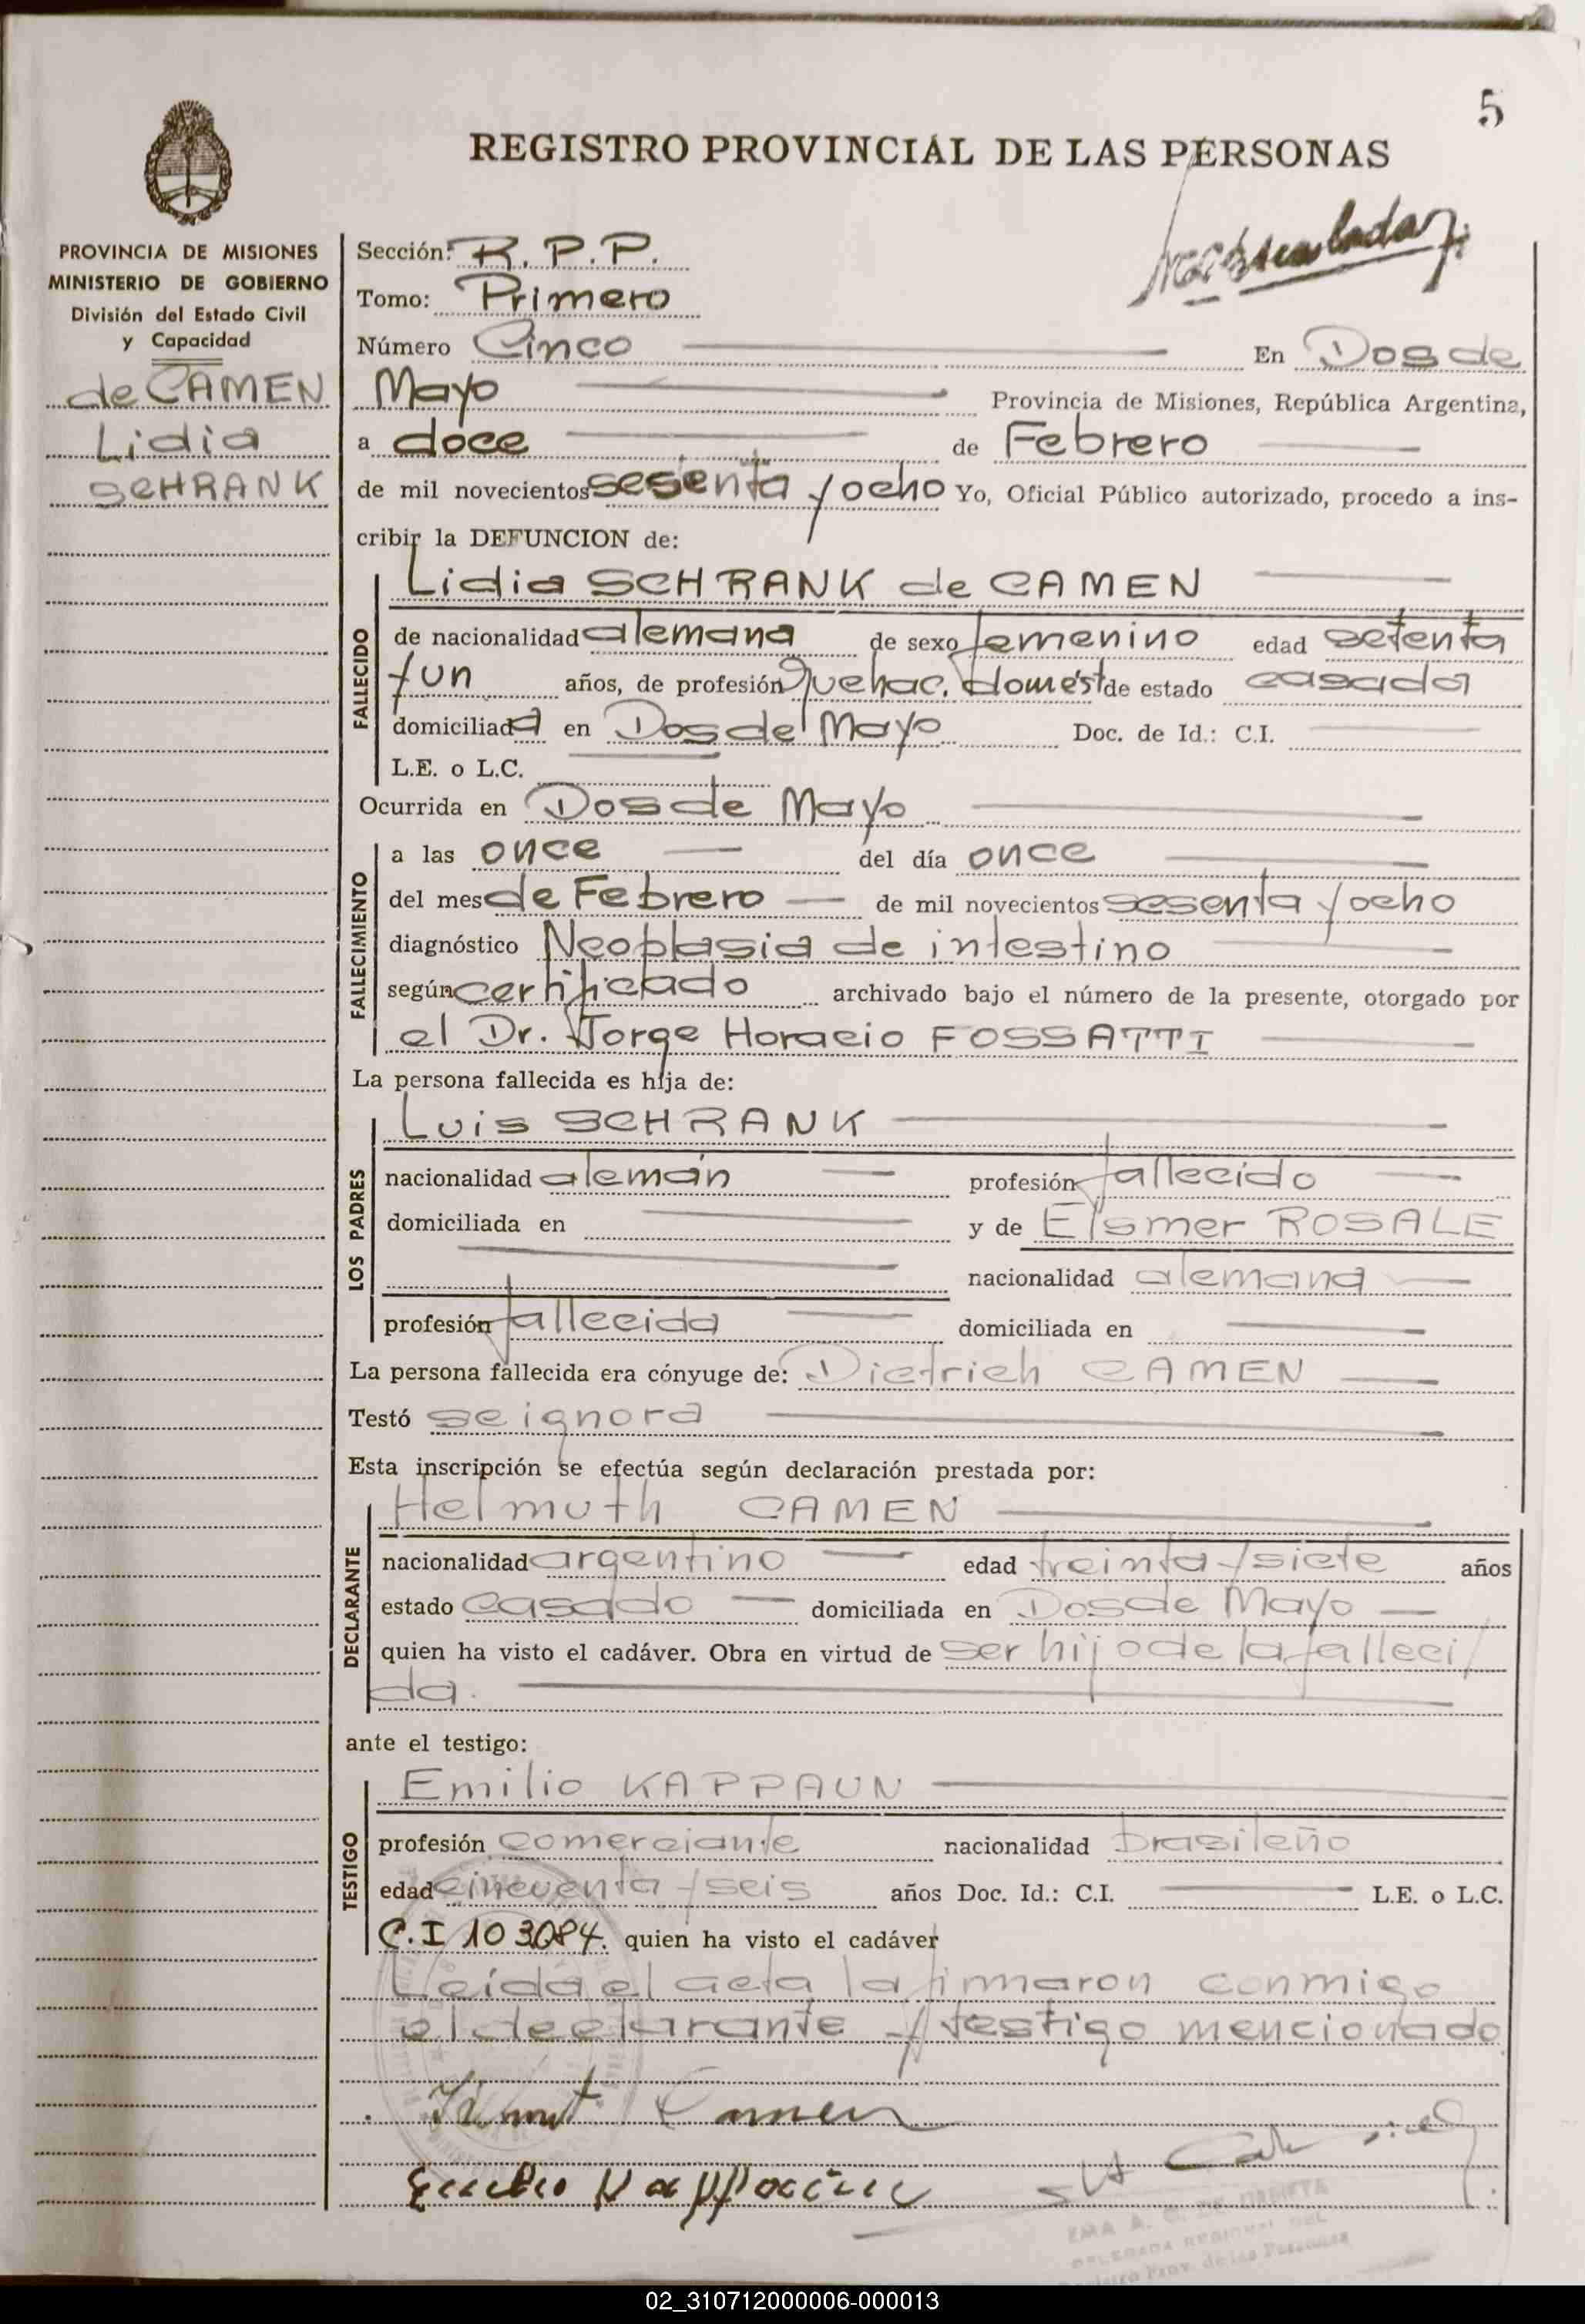 5
REGISTRO PROVINCIAL DE LAS PERSONAS
PROVINCIA DE MISIONES
MINISTERIO DE GOBIERNO
División del Estado Civil
y Capacidad
de CAMEN
Lidia
SCHRANK
Sección: R.P.P.
Tomo: Primero
Número Cinco En Dos de
Mayo Provincia de Misiones, República Argentina,
a doce de Febrero
de mil novecientos sesenta y ocho Yo, Oficial Público autorizado, procedo a ins-
cribir la DEFUNCION de:
FALLECIDO
Lidia SCHRANK de CAMEN
de nacionalidad alemana de sexo femenino edad setenta
y un años, de profesión Quehac. domést de estado casada
domiciliada en Dos de Mayo Doc. de Id.: C.I.
L.E. o L.C.
Ocurrida en Dos de Mayo
FALLECIMIENTO
a las once del día once
del mes de Febrero de mil novecientos sesenta y ocho
diagnóstico Neoplasia de intestino
según certificado archivado bajo el número de la presente, otorgado por
el Dr. Jorge Horacio FOSSATTI
La persona fallecida es hija de:
LOS PADRES
Luis SCHRANK
nacionalidad alemán profesión fallecido
domiciliada en y de Elsmer ROSALE
nacionalidad alemana
profesión fallecida domiciliada en
La persona fallecida era cónyuge de: Dietrich CAMEN
Testó se ignora
Esta inscripción se efectúa según declaración prestada por:
DECLARANTE
Helmuth CAMEN
nacionalidad argentino edad treinta y siete años
estado Casado domiciliada en Dos de Mayo
quien ha visto el cadáver. Obra en virtud de ser hijo de la falleci
da.
ante el testigo:
TESTIGO
Emilio KAPPAUN
profesión comerciante nacionalidad brasileño
edad cincuenta y seis años Doc. Id.: C.I. L.E. o L.C.
C.I 103.084. quien ha visto el cadáver
Leída el acta la firmaron conmigo
el declarante y testigo mencionado
Camen
Emilio Kappaun
EMA A. G. DE
DELEGADA REGIONAL DEL
Registro Prov. de las Personas
02_310712000006-000013